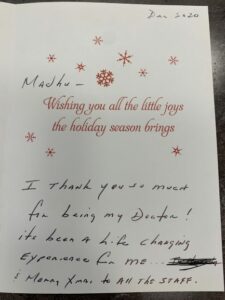 Dec 2020
Madhu -
Wishing you all the little joys
the holiday season brings
I Thank you so much
for being my Doctor!
its been a Life changing
Experience for me...
& Merry Xmas to ALL THE STAFF.